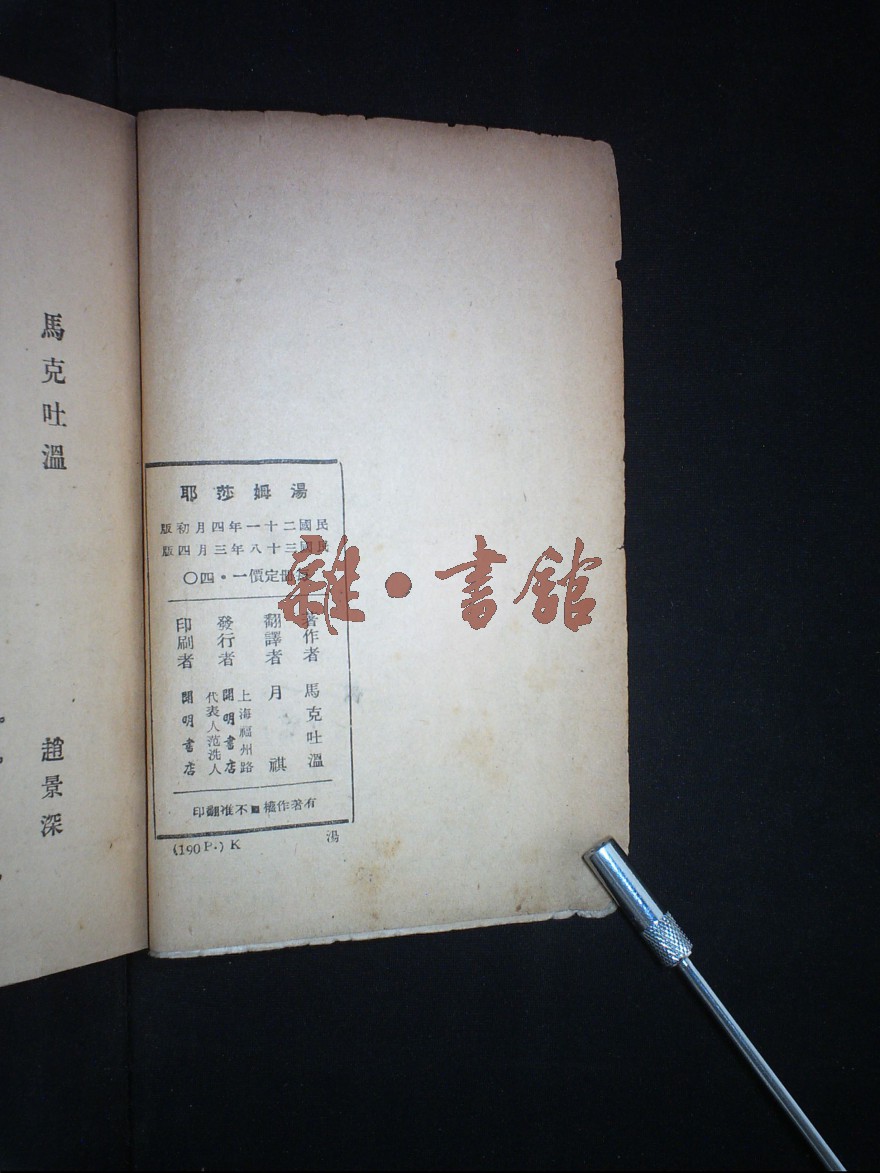 湯姆莎耶
民國二十一年四月初版
民國三十八年三月四版
每冊定價一·四〇
著作者 馬克吐溫
翻譯者 月祺
發行者 上海福州路
開明書店
代表人范洗人
印刷者 開明書店
有著作權■不准翻印
湯
(190 P.) K
馬克吐溫
趙景深
雜·書館